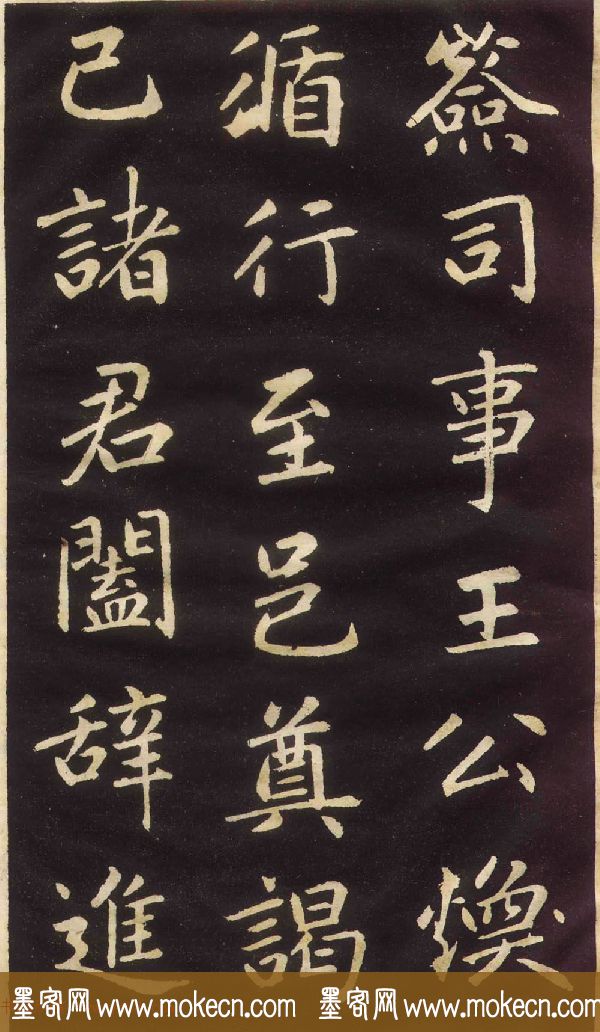 签司事王公焕
循行至邑奠謁
已諸君闔辞進
墨客网 www.mokecn.com 墨客网 www.mokecn.com